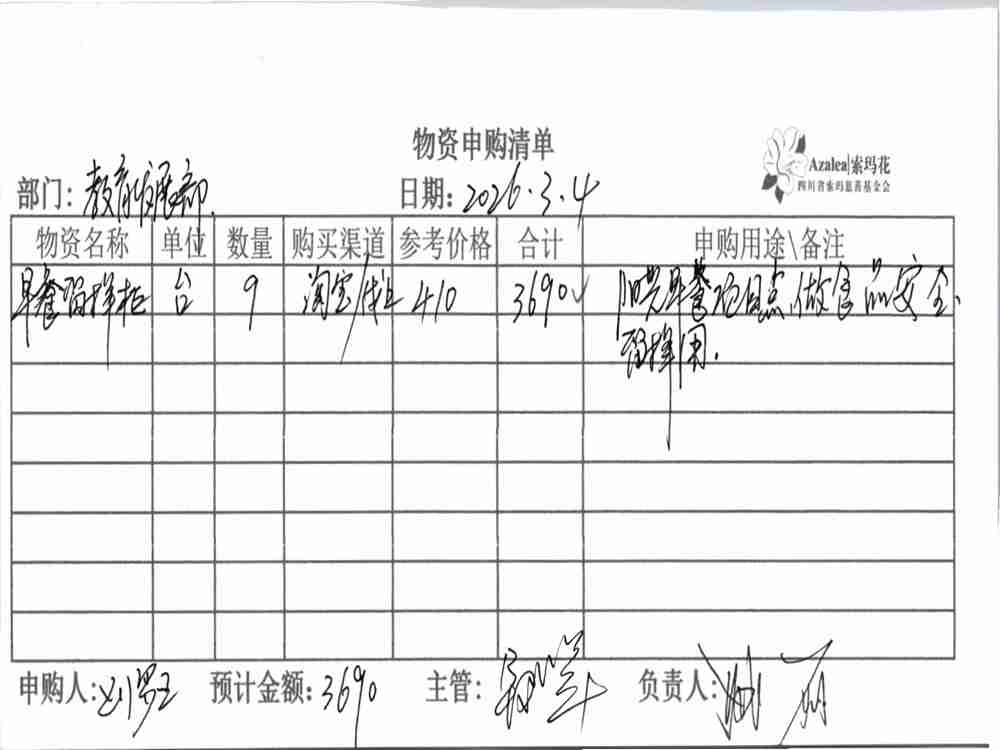 物资申购清单
Azalea|索玛花
四川省索玛慈善基金会
部门：教育发展部 日期：2026.3.4
物资名称 单位 数量 购买渠道 参考价格 合计 申购用途\备注
早餐留样柜 台 9 淘宝 410 3690 阳光早餐项目点做食品安全
留样用.
申购人： 预计金额：3690 主管： 负责人：